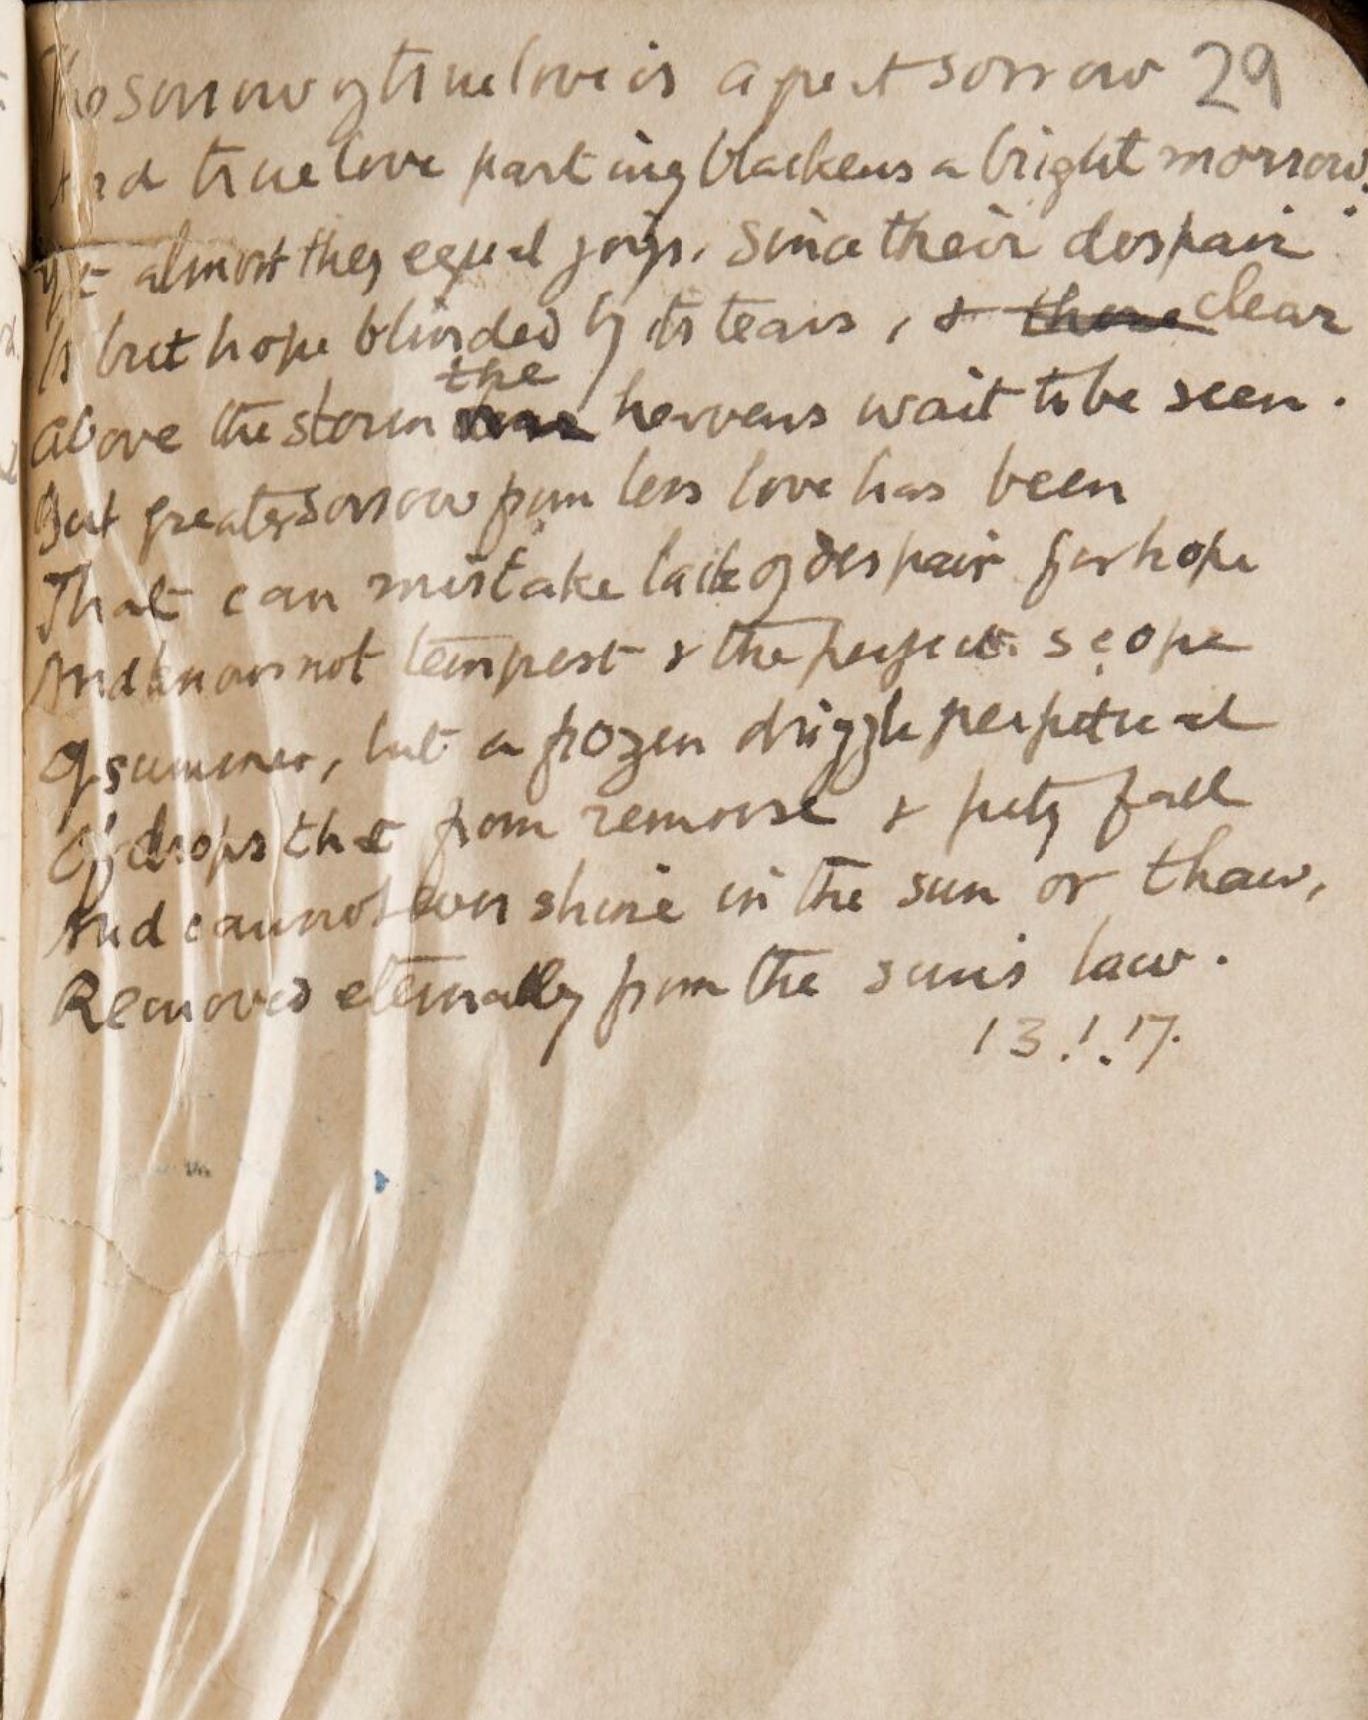 The sorrow of true love is a great sorrow 29
And true love parting blackens a bright morrow.
Yet almost they equal joys, since their despair
Is but hope blinded by its tears, & clear
the
Above the storm heavens wait to be seen.
But greater sorrow from less love has been
That can mistake lack of despair for hope
And knows not tempest & the perfect scope
Of summer, but a frozen drizzle perpetual
Of drops that from remorse & pity fall
And cannot ever shine in the sun or thaw,
Removed eternally from the sun's law.
13.1.17.